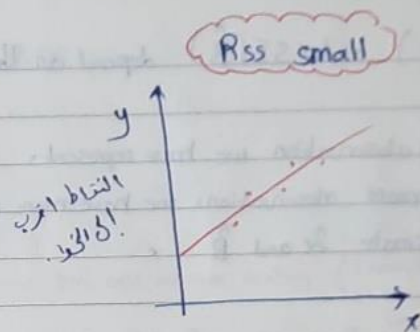 Rss small
y
النقاط اقرب
إلى الخط.
x